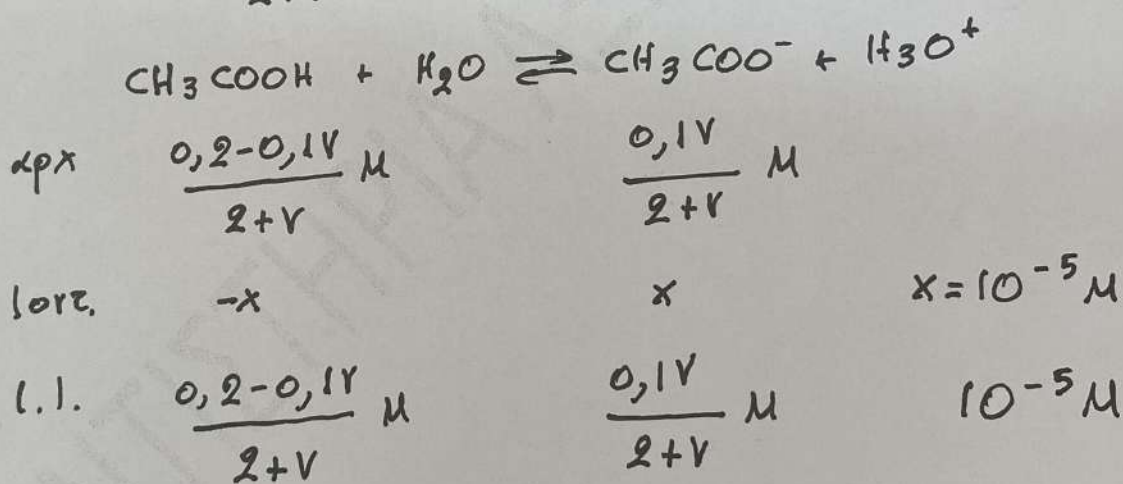 CH3COOH + H2O ⇌ CH3COO⁻ + H3O⁺
αρχ (0,2-0,1V)/(2+V) M 0,1V/(2+V) M
ιοντ. -x x x=10⁻⁵ M
Ι.Ι. (0,2-0,1V)/(2+V) M 0,1V/(2+V) M 10⁻⁵ M